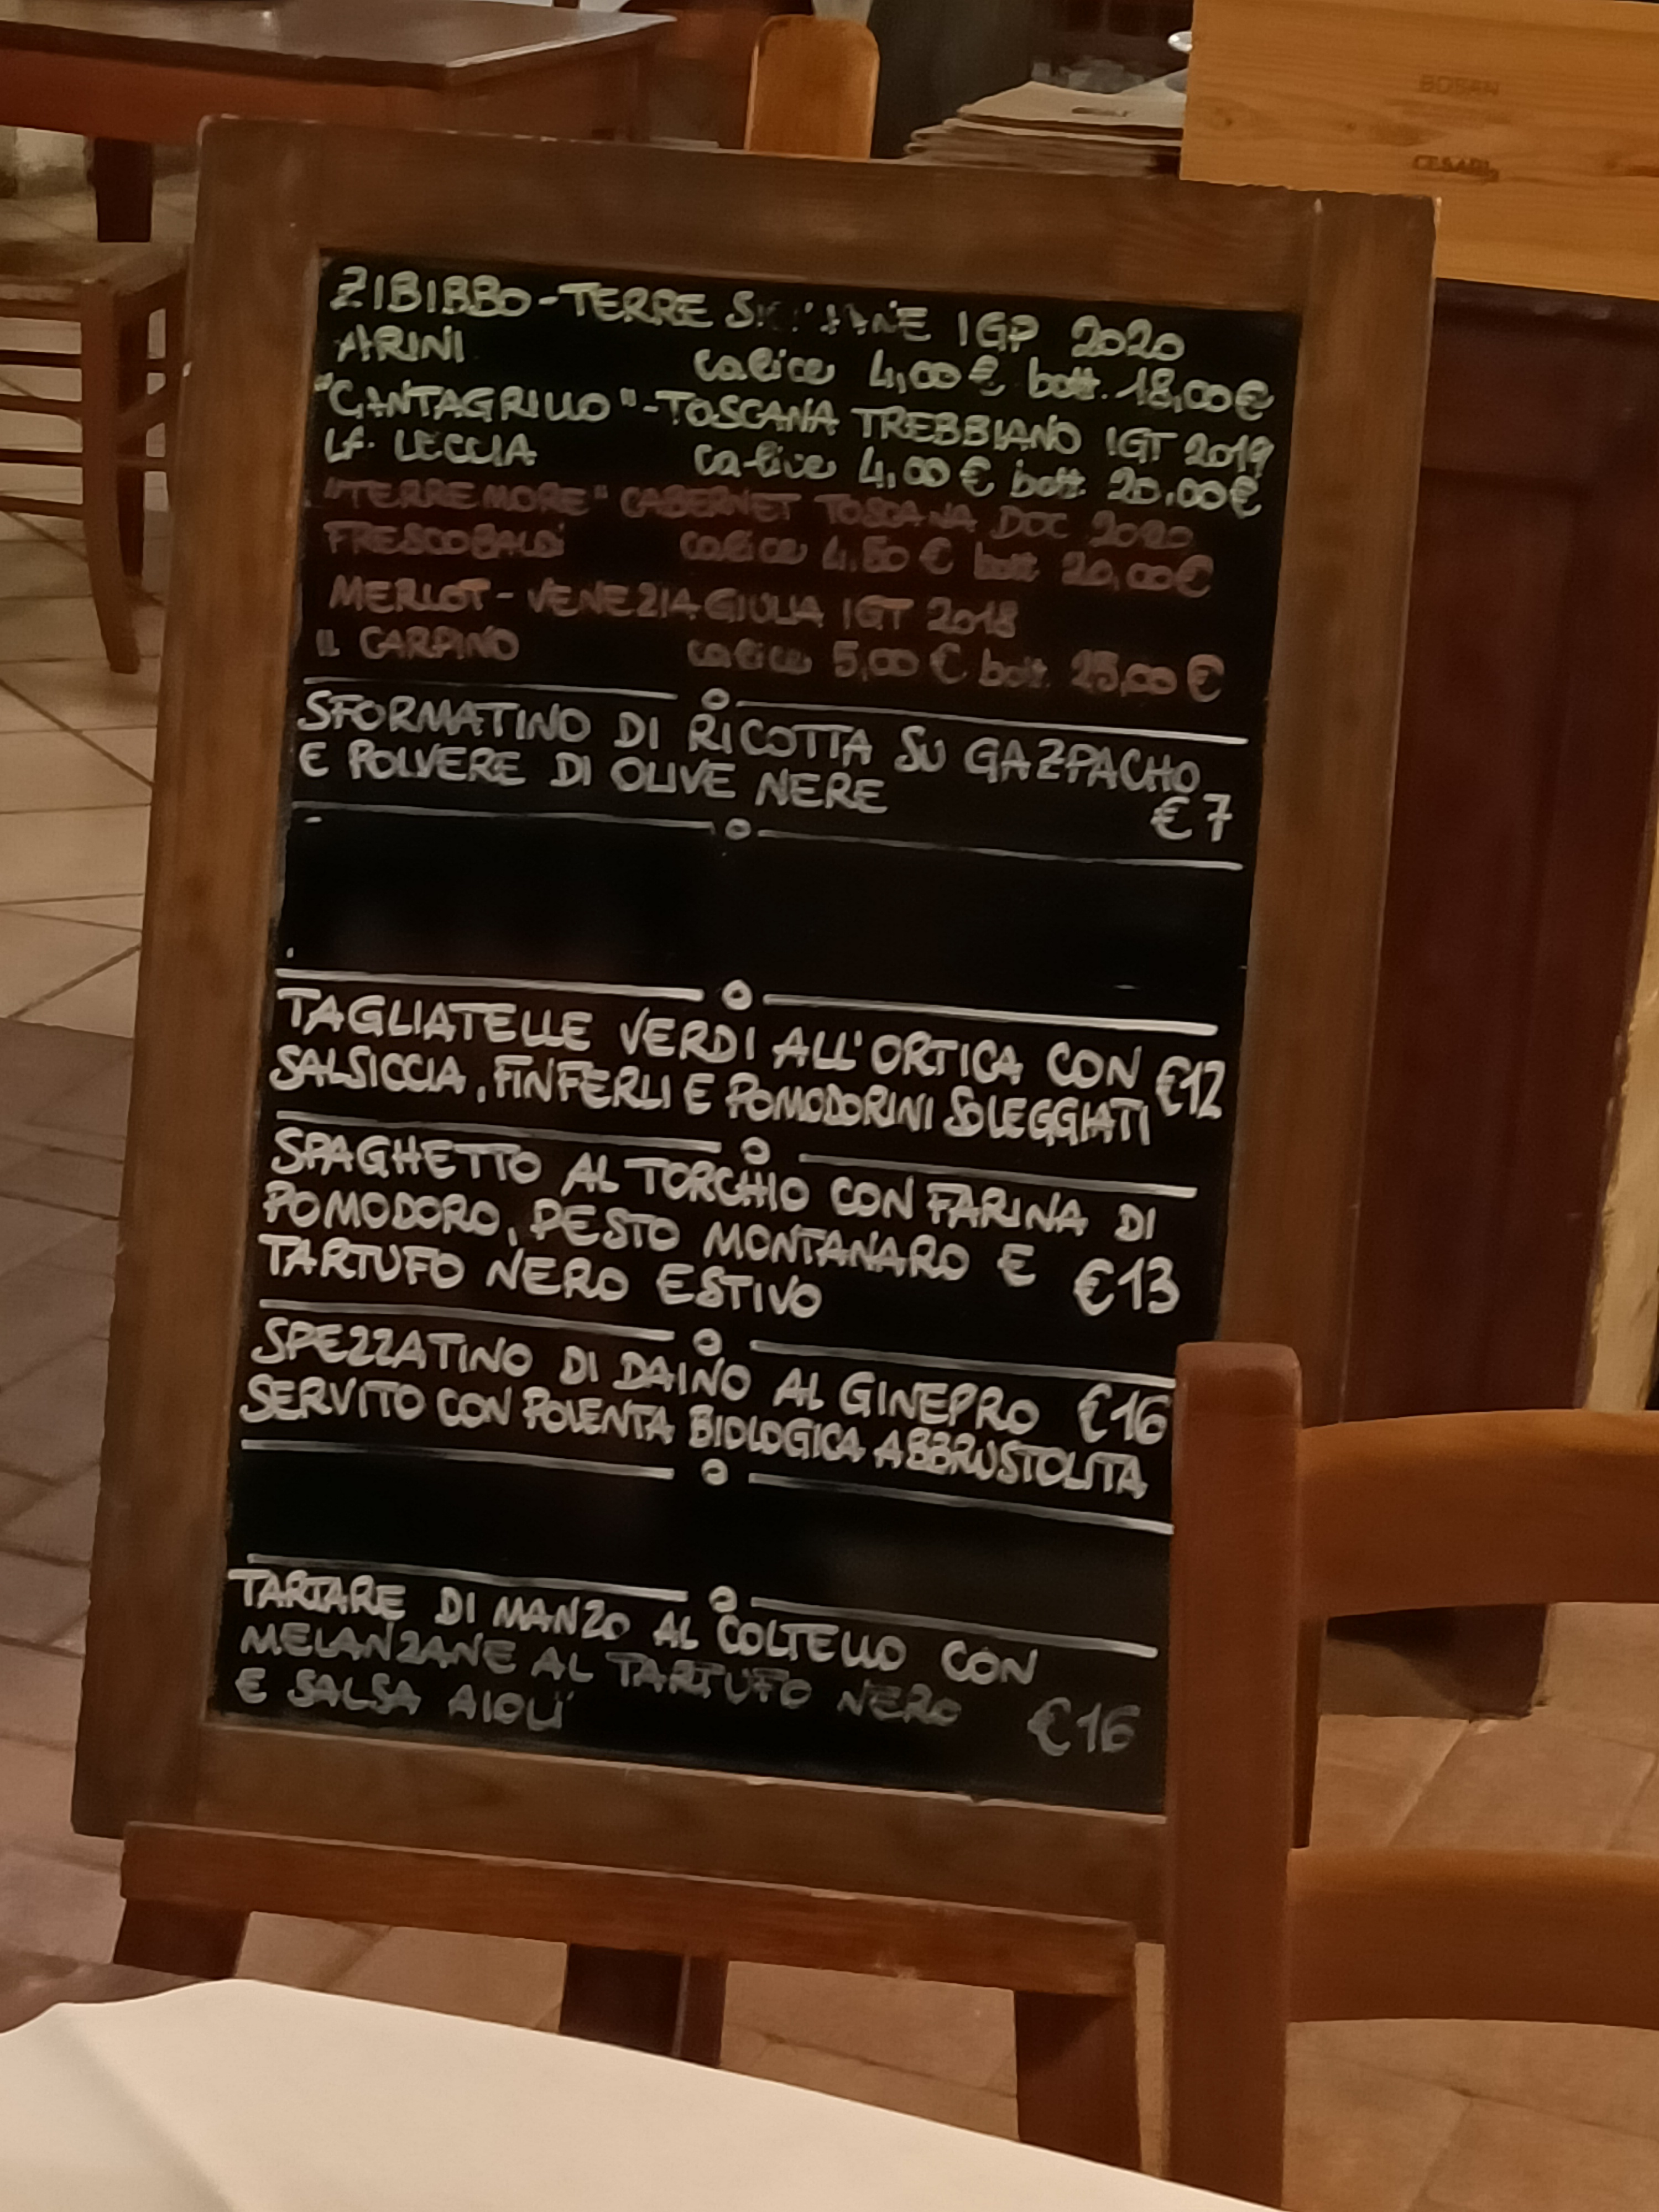 BOSAN
CESARI
ZIBIBBO-TERRE IGP 2020
ARINI calice 4,00 € bott. 18,00 €
"CANTAGRILLO"-TOSCANA TREBBIANO IGT 2019
LA LECCIA calice 4,00 € bott. 20,00 €
"TERRE MORE" CABERNET TOSCANA DOC 2020
FRESCOBALDI calice 4,50 € bott 20,00 €
MERLOT - VENEZIA GIULIA IGT 2018
IL CARPINO calice 5,00 € bott. 25,00 €
SFORMATINO DI RICOTTA SU GAZPACHO
E POLVERE DI OLIVE NERE € 7
TAGLIATELLE VERDI ALL'ORTICA CON €12
SALSICCIA, FINFERLI E POMODORINI SOLEGGIATI
SPAGHETTO AL TORCHIO CON FARINA DI
POMODORO, PESTO MONTANARO E €13
TARTUFO NERO ESTIVO
SPEZZATINO DI DAINO AL GINEPRO €16
SERVITO CON POLENTA BIOLOGICA ABBRUSTOLITA
TARTARE DI MANZO AL COLTELLO CON
MELANZANE AL TARTUFO NERO €16
E SALSA AIOLI